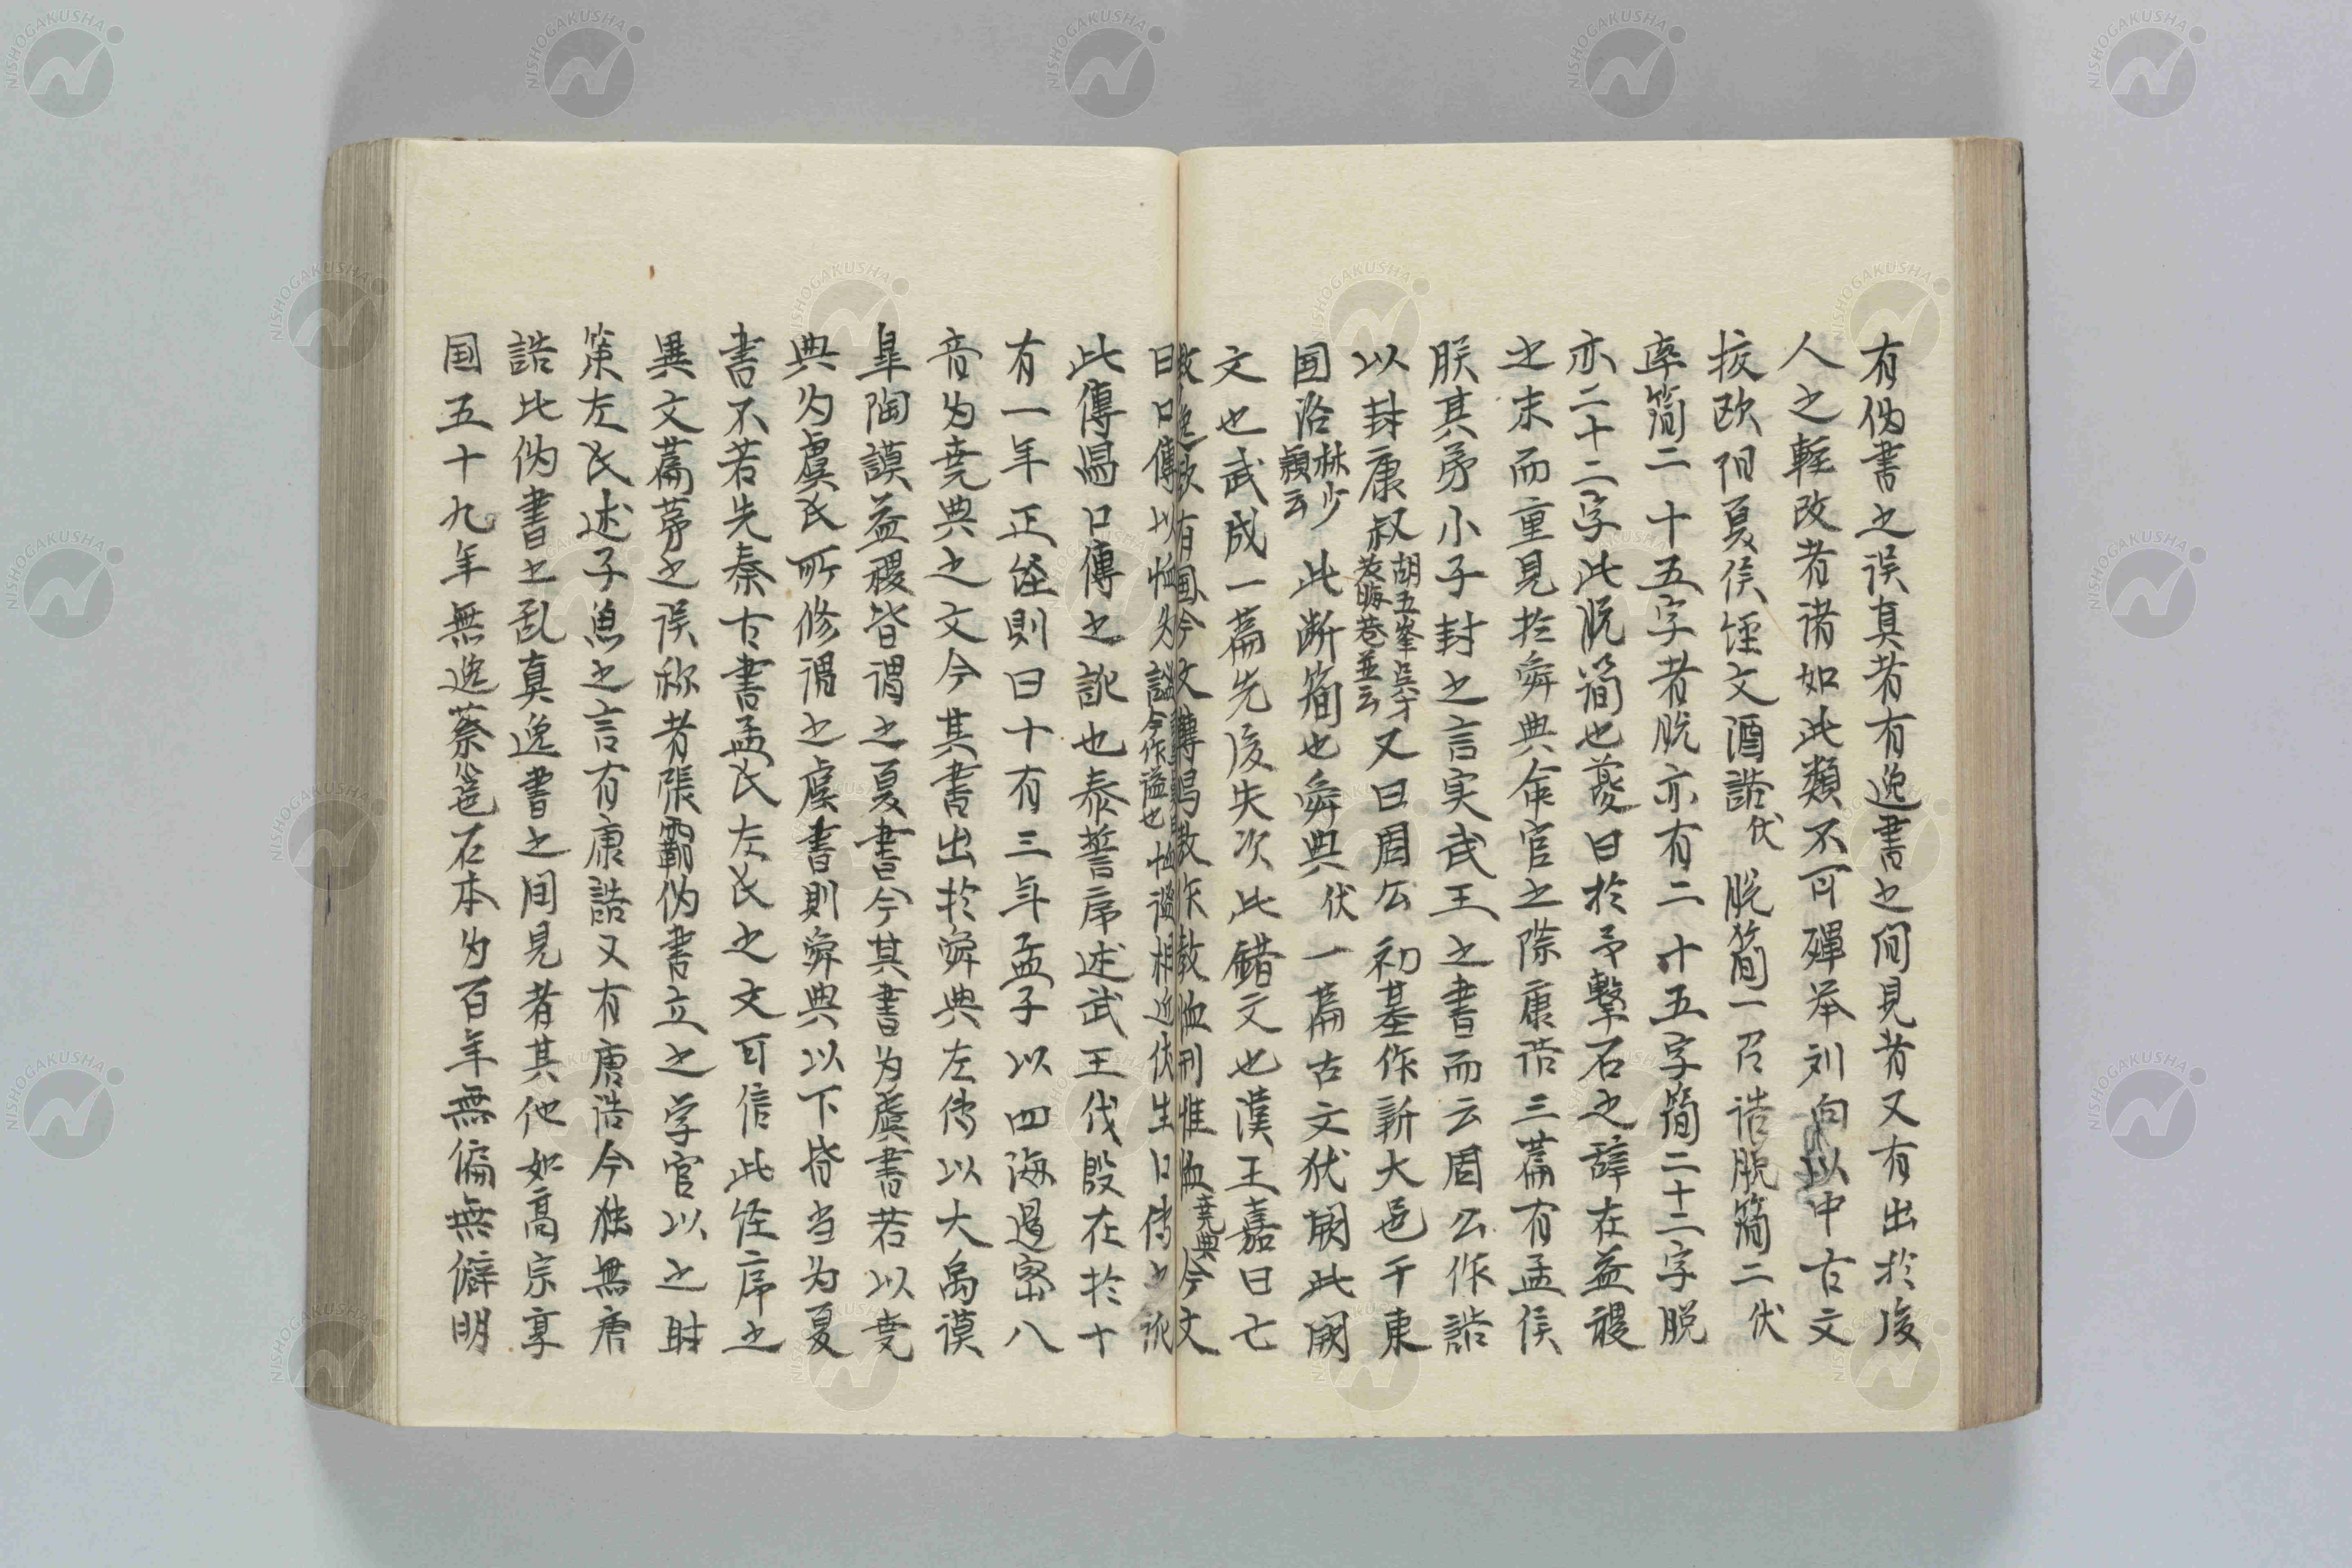 有伪書之误真者有逸書之间見者又有出於後
人之輕改者诸如此類不可殫举刘向以中古文
挍欧阳夏侯经文酒誥伏脱简一召诰脱简二伏
率简二十五字者脱亦有二十五字简二十二字脱
亦二十二字此脱简也夔曰於予擊石之辞在益稷
之末而重見於舜典命官之際康诰三篇有孟侯
朕其弟小子封之言実武王之書而云周公作誥
以封康叔胡五峯吴才朱晦巷並云又曰周公初基作新大邑于東
国洛林少穎云此断简也舜典伏一篇古文狀闕此闕
文也武成一篇先後失次此錯文也漢王嘉曰亡
敖逸欲有国今文傳爲教作敖恤刑惟恤尭典今文
曰口傳以恤为謐今作谧也恤謐相近伏生口传之讹
此傳寫口傳之訛也泰誓序述武王伐殷在於十
有一年正经則曰十有三年孟子以四海遏密八
音为尭典之文今其書出於舜典左传以大禹谟
皐陶謨益稷皆谓之夏書今其書为虞書若以尭
典为虞氏所修谓之虞書則舜典以下皆当为夏
書不若先秦古書孟氏左氏之文可信此经序之
異文篇苐之误称者張霸伪書立之学官以之射
策左氏述子魚之言有康誥又有唐诰今独無唐
誥此伪書之乱真逸書之间見者其他如高宗享
国五十九年無逸蔡邕石本为百年無偏無僻明